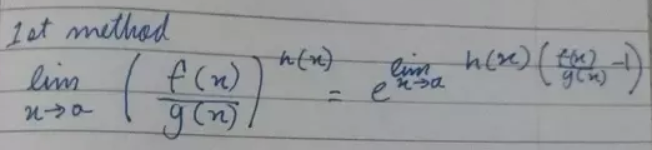 1st method
lim x→a ( f(x) / g(x) )^h(x) = e^lim x→a h(x) ( f(x) / g(x) -1)